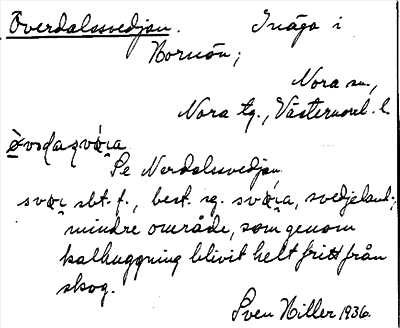 Överdalssvedjan. Inäga i
Nornön;
Nora sn.,
Nora tg., Västernorrl. l.
Se Nordalssvedjan
sbt. f., best. sg. svedjeland;
mindre område, som genom
kalhuggning blivit helt fritt från
skog.
Sven Hiller 1936.